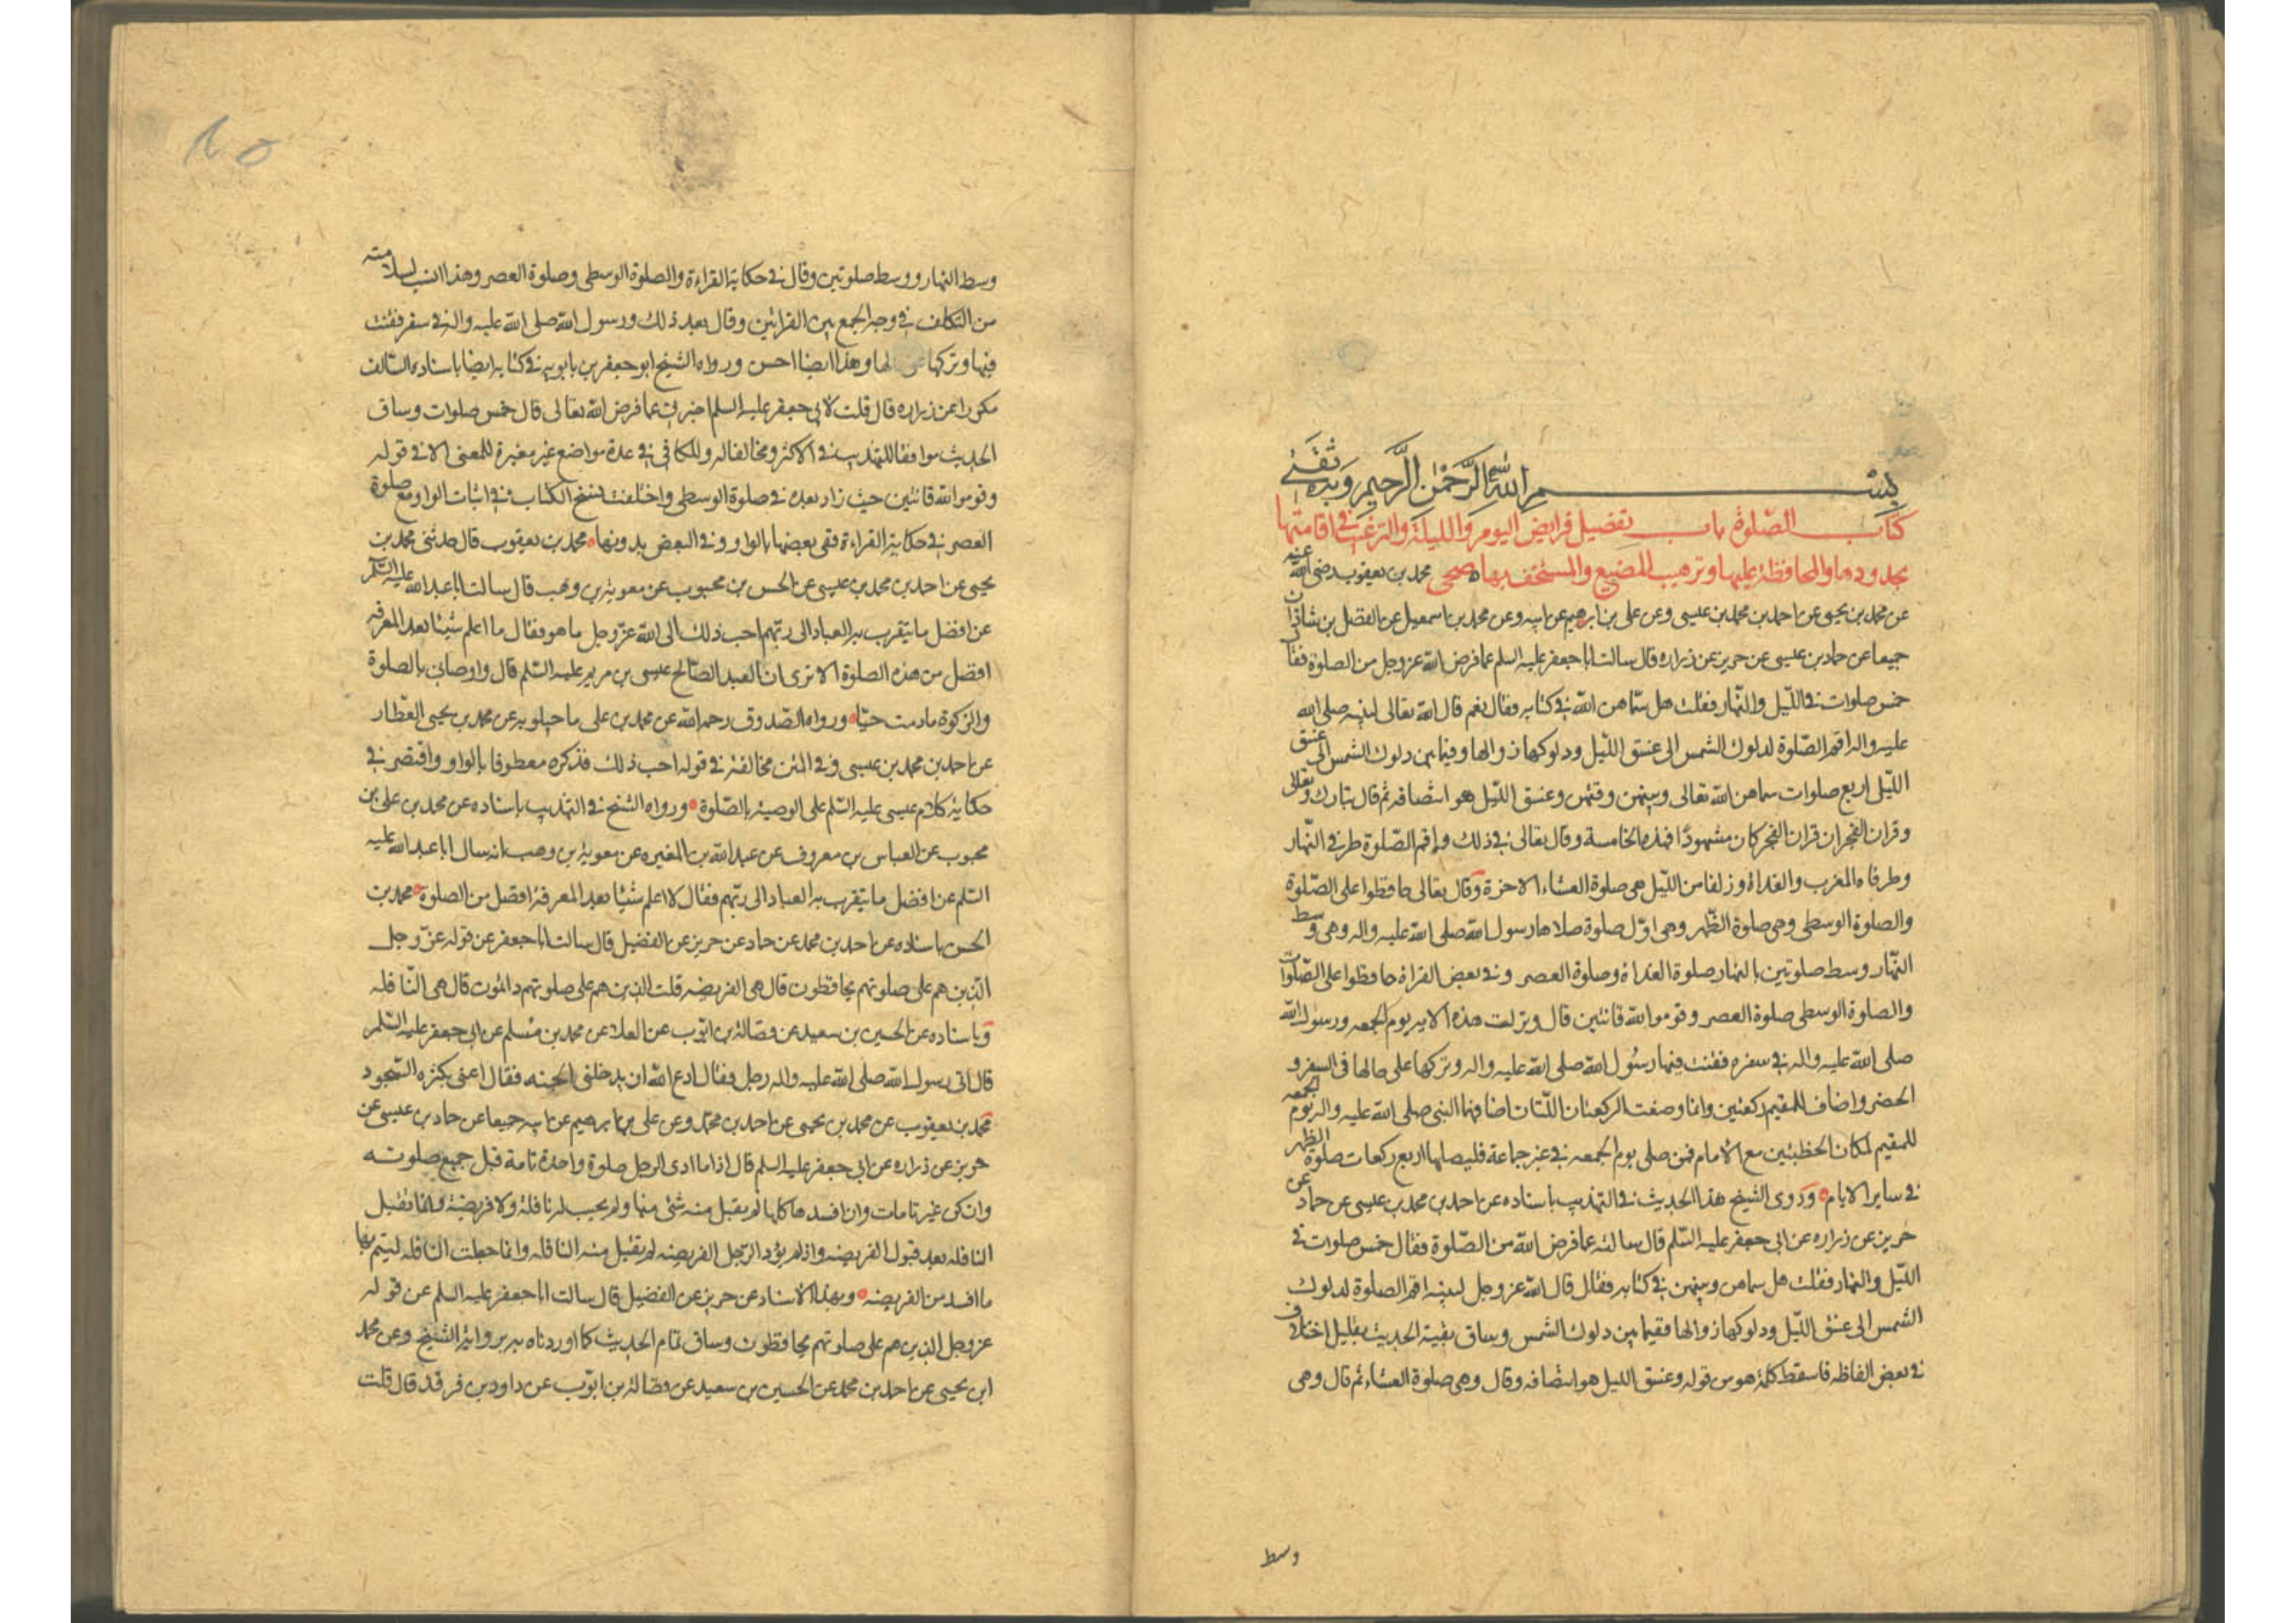 بسم الله الرحمن الرحيم وبه ثقتى
كتاب الصلوة باب تفضيل فرايض اليوم والليلة والترغيب فى اقامتها
بحدودها والمحافظة عليها وترهيب المضيع والمستخف بها صحى محمد بن يعقوب رضى الله عنه
عن محمد بن يحيى عن احمد بن محمد بن عيسى وعن على بن ابرهيم عن ابيه وعن محمد بن اسمعيل عن الفضل بن شاذان
جميعا عن حماد بن عيسى عن حريز عن زراره قال سالت ابا جعفر عليه السلم عما فرض الله عز وجل من الصلوة فقال
خمس صلوات فى الليل والنهار فقلت هل سماهن الله فى كتابه فقال نعم قال الله تعالى لنبيه صلى الله
عليه واله اقم الصلوة لدلوك الشمس الى غسق الليل ودلوكها زوالها وفيما بين دلوك الشمس الى غسق
الليل اربع صلوات سماهن الله تعالى وبينهن وقتهن وغسق الليل هو انتصافه ثم قال تبارك وتعالى
وقران الفجر ان قران الفجر كان مشهودا فهذه الخامسة وقال تعالى فى ذلك واقم الصلوة طرفى النهار
وطرفاه المغرب والغداة وزلفا من الليل هى صلوة العشاء الاخرة وقال تعالى حافظوا على الصلوة
والصلوة الوسطى وهى صلوة الظهر وهى اول صلوة صلاها رسول الله صلى الله عليه واله وهى وسط
النهار وسط صلوتين بالنهار صلوة الغداة وصلوة العصر وفى بعض القراة حافظوا على الصلوات
والصلوة الوسطى صلوة العصر وقوموا لله قانتين قال ونزلت هذه الايه يوم الجمعه ورسول الله
صلى الله عليه واله فى سفره فقنت فيها رسول الله صلى الله عليه واله وتركها على حالها فى السفر و
الحضر واضاف للمقيم ركعتين وانما وضعت الركعتان اللتان اضافهما النبى صلى الله عليه واله يوم الجمعه
للمقيم لمكان الخطبتين مع الامام فمن صلى يوم الجمعه فى غير جماعة فليصلها اربع ركعات صلوة الظهر
فى ساير الايام وروى الشيخ هذا الحديث فى التهذيب باسناده عن احمد بن محمد بن عيسى عن حماد عن
حريز عن زراره عن ابى جعفر عليه السلم قال سالته عما فرض الله من الصلوة فقال خمس صلوات فى
الليل والنهار فقلت هل سماهن وبينهن فى كتابه فقال قال الله عز وجل لنبيه اقم الصلوة لدلوك
الشمس الى غسق الليل ودلوكها زوالها فقيما بين دلوك الشمس وساق بقية الحديث بقليل اختلاف
فى بعض الفاظه فاسقط كلمة هو من قوله وغسق الليل هو انتصافه وقال وهى صلوة العشاء ثم قال وهى
وسط
وسط النهار ووسط صلوتين وقال فى حكاية القراءة والصلوة الوسطى وصلوة العصر وهذا انسب لسلامته
من التكلف فى وجه الجمع بين القرائتين وقال بعد ذلك ورسول الله صلى الله عليه واله فى سفر فقنت
فيها وتركها لها وهذا ايضا احسن ورواه الشيخ ابو جعفر بن بابويه فى كتابه ايضا باسناده السالف
مكررا عن زراره قال قلت لابى جعفر عليه السلم اخبرنى عما فرض الله تعالى قال خمس صلوات وساق
الحديث موافقا للتهذيب فى الاكثر ومخالفا له وللكافى فى عدة مواضع غير مغيرة للمعنى الا فى قوله
وقوموا لله قانتين حيث زاد بعده فى صلوة الوسطى واختلفت نسخ الكتاب فى اثبات الواو مع صلوة
العصر فى حكاية القراءة ففى بعضها بالواو وفى البعض بدونها محمد بن يعقوب قال حدثنى محمد بن
يحيى عن احمد بن محمد بن عيسى عن الحسن بن محبوب عن معوية بن وهب قال سالت ابا عبد الله عليه السلم
عن افضل ما يتقرب به العباد الى ربهم احب ذلك الى الله عز وجل ما هو فقال ما اعلم شيئا بعد المعرفه
افضل من هذه الصلوة الا ترى ان العبد الصالح عيسى بن مريم عليه السلم قال واوصانى بالصلوة
والزكوة ما دمت حيا ورواه الصدوق رحمه الله عن محمد بن على ماجيلويه عن محمد بن يحيى العطار
عن احمد بن محمد بن عيسى وفى المتن مخالفة فى قوله احب ذلك فذكره معطوفا بالواو واقتصر فى
حكاية كلام عيسى عليه السلم على الوصية بالصلوة ورواه الشيخ فى التهذيب باسناده عن محمد بن على بن
محبوب عن العباس بن معروف عن عبد الله بن المغيره عن معوية بن وهب انه سال ابا عبد الله عليه
السلم عن افضل ما يتقرب به العباد الى ربهم فقال لا اعلم شيئا بعد المعرفة افضل من الصلوة محمد بن
الحسن باسناده عن احمد بن محمد عن حماد عن حريز عن الفضيل قال سالت ابا جعفر عن قوله عز وجل
الذين هم على صلوتهم يحافظون قال هى الفريضه قلت الذين هم على صلوتهم دائمون قال هى النافله
وباسناده عن الحسين بن سعيد عن فضالة بن ايوب عن العلا عن محمد بن مسلم عن ابى جعفر عليه السلم
قال اتى رسول الله صلى الله عليه واله رجل فقال ادع الله ان يدخلنى الجنه فقال اعنى بكثره السجود
محمد بن يعقوب عن محمد بن يحيى عن احمد بن محمد وعن على بن ابرهيم عن ابيه جميعا عن حماد بن عيسى عن
حريز عن زراره عن ابى جعفر عليه السلم قال اذا ما ادى الرجل صلوة واحدة تامة قبل جميع صلوته
وان كن غير تامات وان افسدها كلها لم يقبل منه شئ منها ولم يحسب له نافلة ولا فريضة وانما تقبل
النافله بعد قبول الفريضه واذا لم يؤد الرجل الفريضه لم تقبل منه النافله وانما جعلت النافله ليتم بها
ما افسد من الفريضه وبهذا الاسناد عن حريز عن الفضيل قال سالت ابا جعفر عليه السلم عن قوله
عز وجل الذين هم على صلوتهم يحافظون وساق تمام الحديث كما اوردناه برواية الشيخ وعن محمد
ابن يحيى عن احمد بن محمد عن الحسين بن سعيد عن فضالة بن ايوب عن داود بن فرقد قال قلت